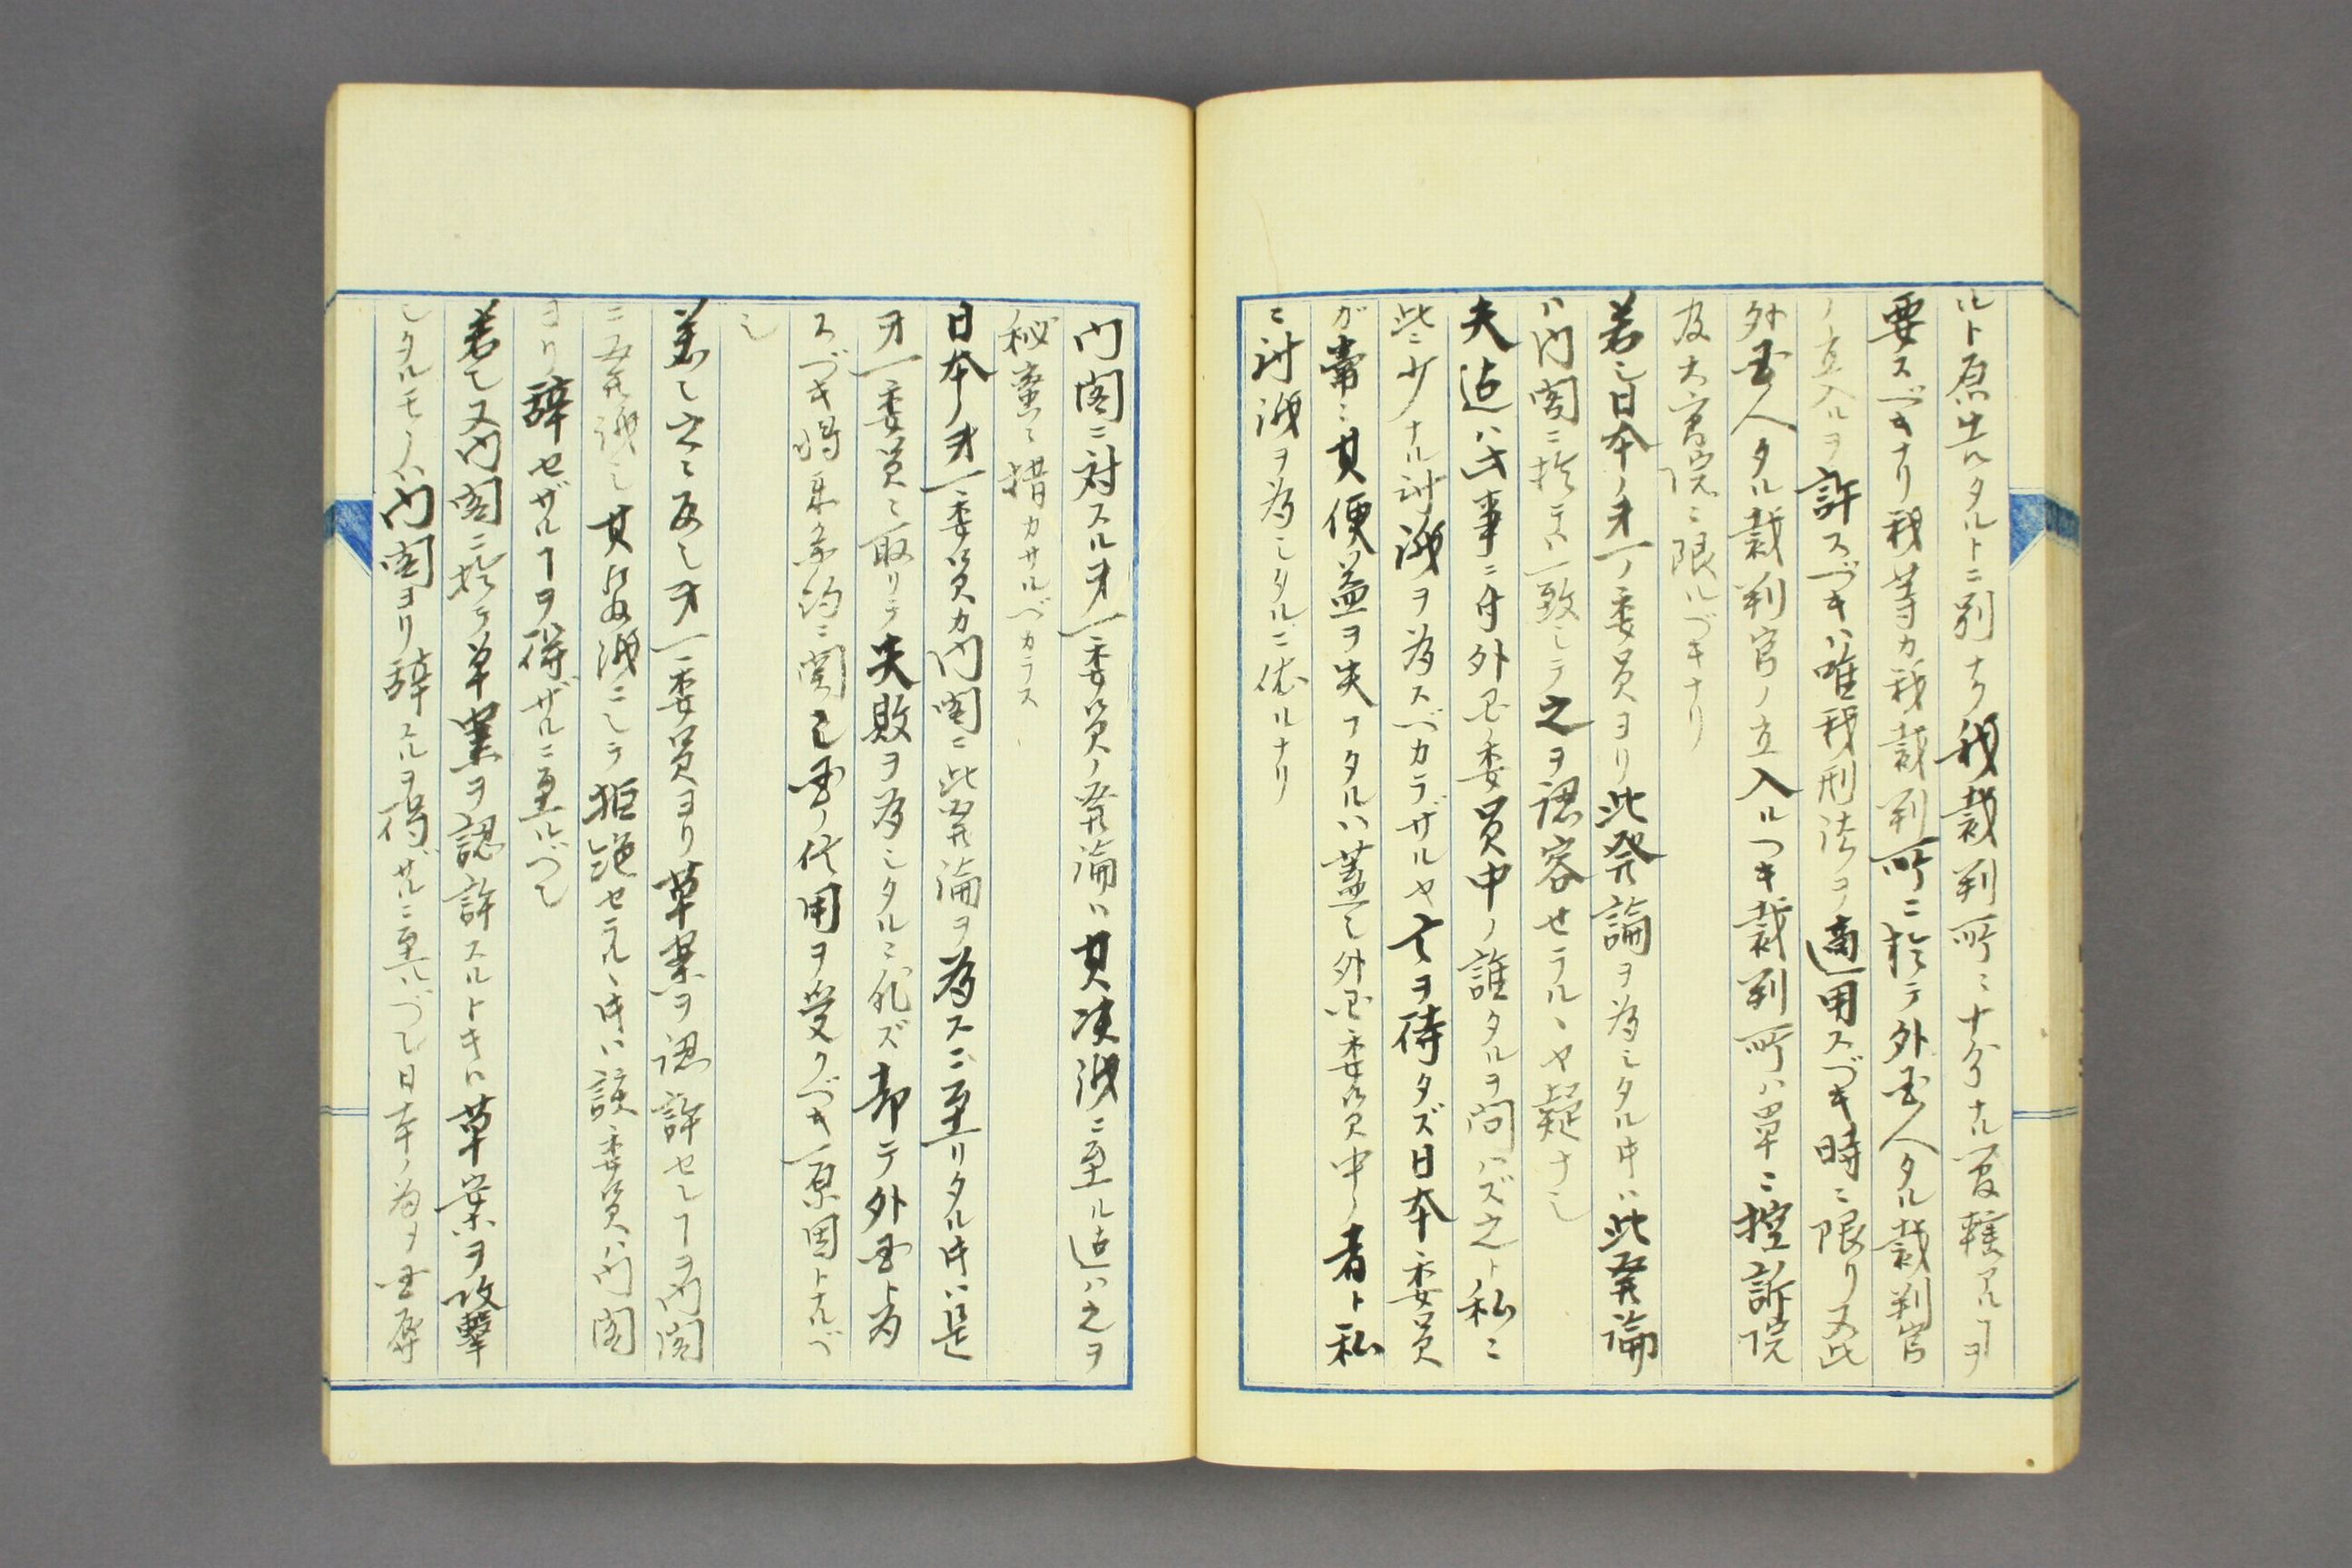 ルト原告タルトニ別ナク我裁判所ニ十分ナル管轄アルヿヲ
要スベキナリ我等カ我裁判所ニ於テ外国人タル裁判官
ノ立入ルヲ許スベキハ唯我刑法ヲ適用スベキ時ニ限リ又此
外国人タル裁判官ノ立入ルヘキ裁判所ハ単ニ控訴院
及大審院ニ限ルベキナリ
若シ日本ノ才一ノ委員ヨリ此発論ヲ為シタル时ハ此発論
ハ内閣ニ於テハ一致シテ之ヲ認容セラルヽヤ疑ナシ
夫迠ハ此事ニ付外国委員中ノ誰タルヲ問ハズ之ト私ニ
些少ナル討議ヲ為スベカラザルヤ言ヲ待タズ日本委員
ガ常ニ其便益ヲ失フタルハ蓋シ外国委員中ノ者ト私
ニ討議ヲ為シタルニ依ルナリ
内閣ニ対スル才一委員ノ発論ハ其决議ニ至ル迠ハ之ヲ
秘密ニ措カサルベカラス
日本ノ才一委員カ内閣ニ此発論ヲ為スニ至リタル时ハ是
才一委員ニ取リテ失敗ヲ為シタルニ非ズ却テ外国ト為
スベキ将来条約ニ関シ国ノ代用ヲ受クベキ一原因トナルベ
シ
若シ之ニ反シ才一委員ヨリ草案ヲ認許セシヿヲ内閣
ニ発議シ其発議ニシテ拒絶セラルヽ时ハ該委員ハ内閣
ヨリ辞セザルヿヲ得ザルニ至ルベシ
若シ又内閣ニ於テ草案ヲ認許スルトキハ草案ヲ攻撃
シタルモノハ内閣ヨリ辞スルヲ得ザルニ至ルベシ日本ノ為メ国辱